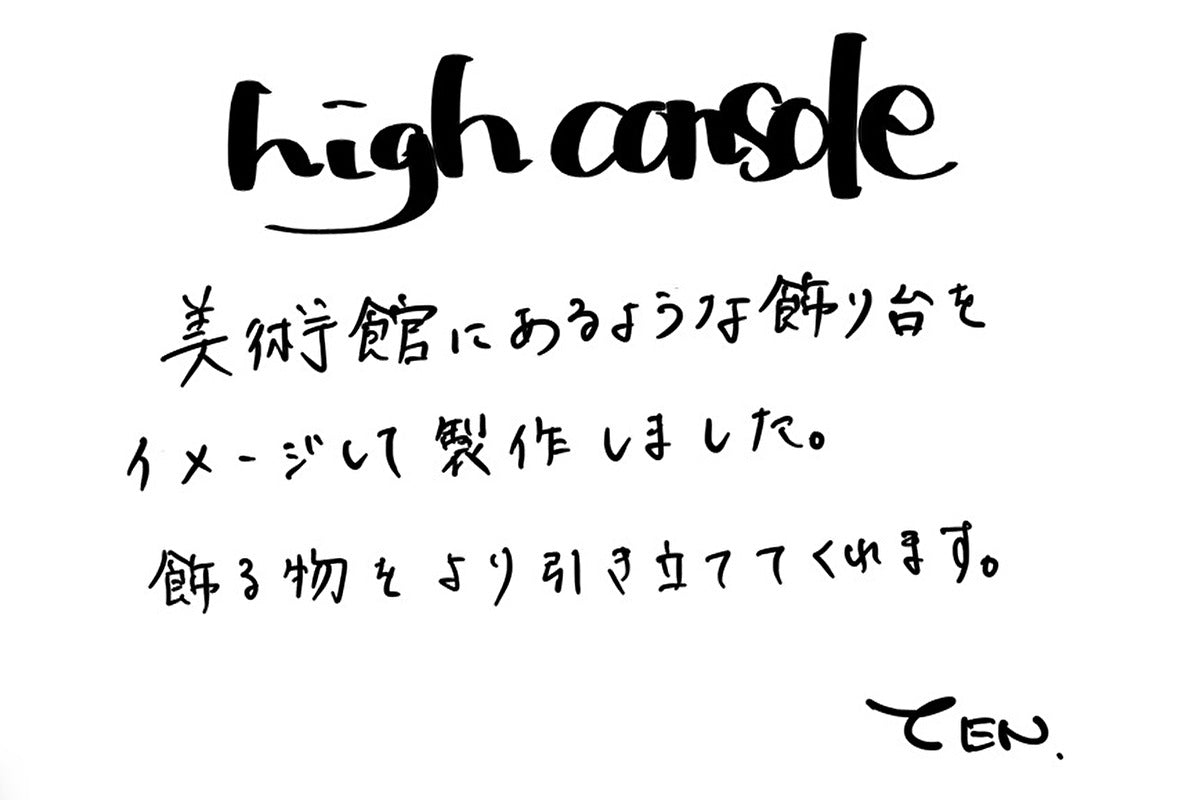 high console
美術館にあるような飾り台を
イメージして製作しました。
飾る物をより引き立ててくれます。
TEN.